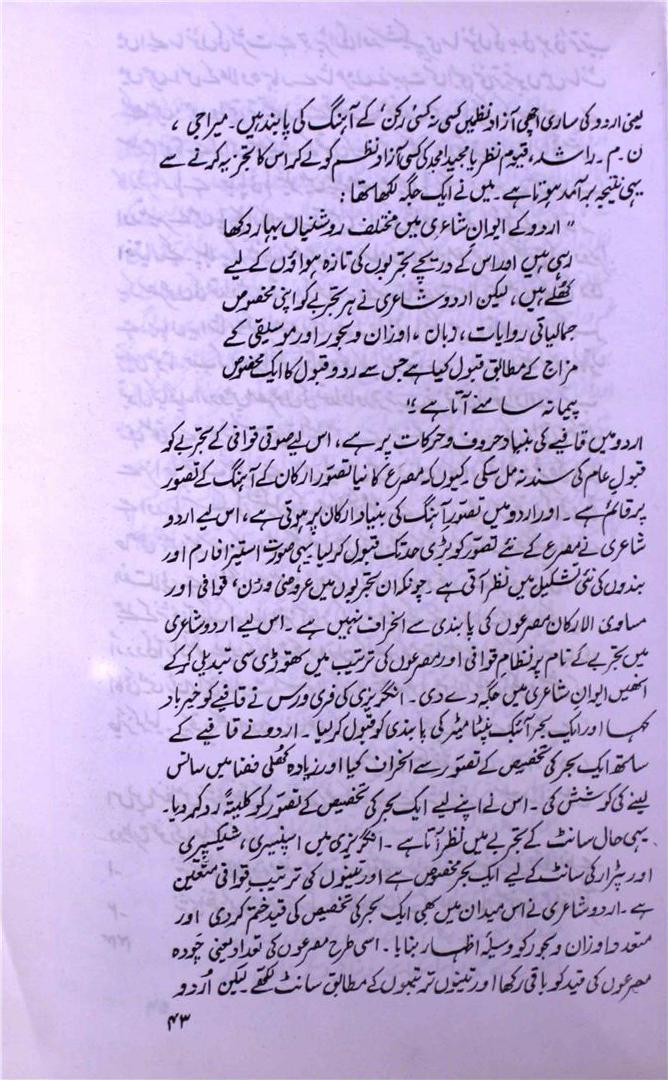 یعنی اردو کی ساری اچھی آزاد نظمیں کسی نہ کسی ’رکن‘ کے آہنگ کی پابند ہیں۔ میراجی،
ن۔م۔راشد، قیوم نظر یا مجید امجد کی کسی آزاد نظم کو لے کر اس کا تجزیہ کرنے سے
یہی نتیجہ برآمد ہوتا ہے۔ میں نے ایک جگہ لکھا تھا:
”اردو کے ایوانِ شاعری میں مختلف روشنیاں بہار دکھا
رہی ہیں اور اس کے دریچے تجربوں کی تازہ ہواؤں کے لیے
کھلے ہیں، لیکن اردو شاعری نے ہر تجربے کو اپنی مخصوص
جمالیاتی روایات، زبان، اوزان و بحور اور موسیقی کے
مزاج کے مطابق قبول کیا ہے جس سے رد و قبول کا ایک مخصوص
پیمانہ سامنے آتا ہے۔“
اردو میں قافیے کی بنیاد حروف و حرکات پر ہے، اس لیے صوتی قوافی کے تجربے کو
قبولِ عام کی سند نہ مل سکی۔ کیوں کہ مصرع کا نیا تصوّر ارکان کے آہنگ کے تصوّر
پر قائم ہے۔ اور اردو میں تصوّرِ آہنگ کی بنیاد ارکان پر ہوتی ہے، اس لیے اردو
شاعری نے مصرع کے نئے تصوّر کو بڑی حد تک قبول کر لیا۔ یہی صورت اسٹیزا فارم اور
بندوں کی نئی تشکیل میں نظر آتی ہے۔ چونکہ ان تجربوں میں عروضی وزن، قوافی اور
مساوی الارکان مصرعوں کی پابندی سے انحراف نہیں ہے۔ اس لیے اردو شاعری
میں تجربے کے نام پر نظامِ قوافی اور مصرعوں کی ترتیب میں تھوڑی سی تبدیلی کر کے
انھیں ایوانِ شاعری میں جگہ دے دی۔ انگریزی کی فری ورس نے قافیے کو خیرباد
کہا اور ایک بحر آئمبک پنٹامیٹر کی پابندی کو قبول کر لیا۔ اردو نے قافیے کے
ساتھ ایک بحر کی تخصیص کے تصوّر سے انحراف کیا اور زیادہ کھلی فضا میں سانس
لینے کی کوشش کی۔ اس نے اپنے لیے ایک بحر کی تخصیص کے تصوّر کو کلیتہً رد کر دیا۔
یہی حال سانٹ کے تجربے میں نظر آتا ہے۔ انگریزی میں اسپنسیری، شیکسپیری
اور پٹرارکی سانٹ کے لیے ایک بحر مخصوص ہے اور تینوں کی ترتیبِ قوافی متعین
ہے۔ اردو شاعری نے اس میدان میں بھی ایک بحر کی تخصیص کی قید ختم کر دی اور
متعدد اوزان و بحور کو وسیلۂ اظہار بنایا۔ اسی طرح مصرعوں کی تعداد یعنی چودہ
مصرعوں کی قید کو باقی رکھا اور تینوں ترتیبوں کے مطابق سانٹ لکھے۔ لیکن اُردو
۴۳